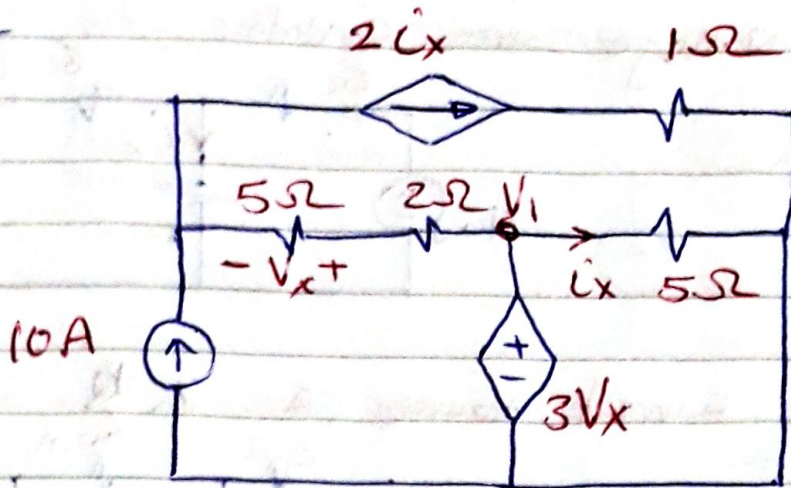 2ix 1Ω
5Ω 2Ω V₁
- Vx + ix 5Ω
10A
+
-
3Vx